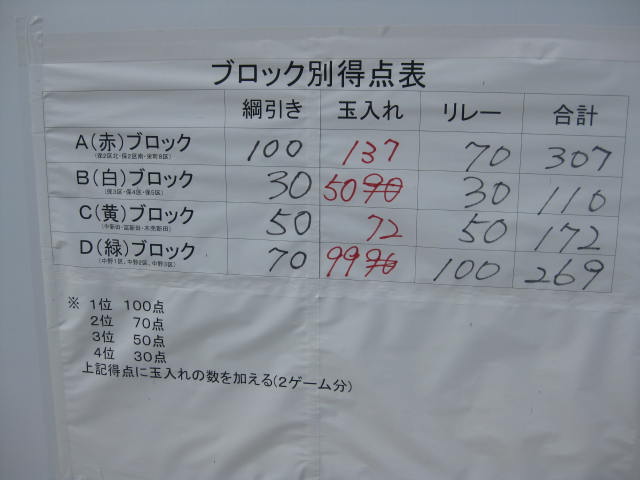 ブロック別得点表
綱引き 玉入れ リレー 合計
A(赤)ブロック 100 137 70 307
(保2区北・保2区南・栄町8区)
B(白)ブロック 30 50 90 30 110
(保3区・保4区・保5区)
C(黄)ブロック 50 72 50 172
(中新田・冨新田・木売新田)
D(緑)ブロック 70 99 96 100 269
(中野1区、中野2区、中野3区)
※ 1位 100点
2位 70点
3位 50点
4位 30点
上記得点に玉入れの数を加える(2ゲーム分)